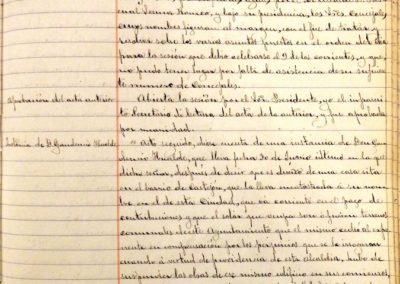 cual Juana Romeo, y bajo su presidencia, los Sres. Concejales,
cuyos nombres figuran al margen, con el fin de tratar y
resolver sobre los varios asuntos puestos en el orden del dia
para la sesión que debió celebrarse el 9 de los corrientes, y que
no pudo tener lugar por falta de asistencia de un suficien
te número de Concejales.
Aprobación del acta anterior
Abierta la sesión por el Sor. Presidente, yo el infrascri
to Secretario dí lectura del acta de la anterior, y fue aprobada
por unanimidad.
Instancia de D. Gaudencio
Acto seguido, dióse cuenta de una instancia de Don Gau
dencio que lleva fecha 30 de Junio último en la que
dicho señor, después de decir que es dueño de una casa sita
en el barrio de que la lleva á su nom
bre en el de esta Ciudad, que va corriente en el pago de
contribuciones y que el solar que ocupa
comunales de este Ayuntamiento que el mismo cedió al expo
nente en compensación por los perjuicios que se le irrogaron
cuando á virtud de providencia de esta Alcaldía, hubo de
suspender las obras de ese mismo edificio en sus comienzos,